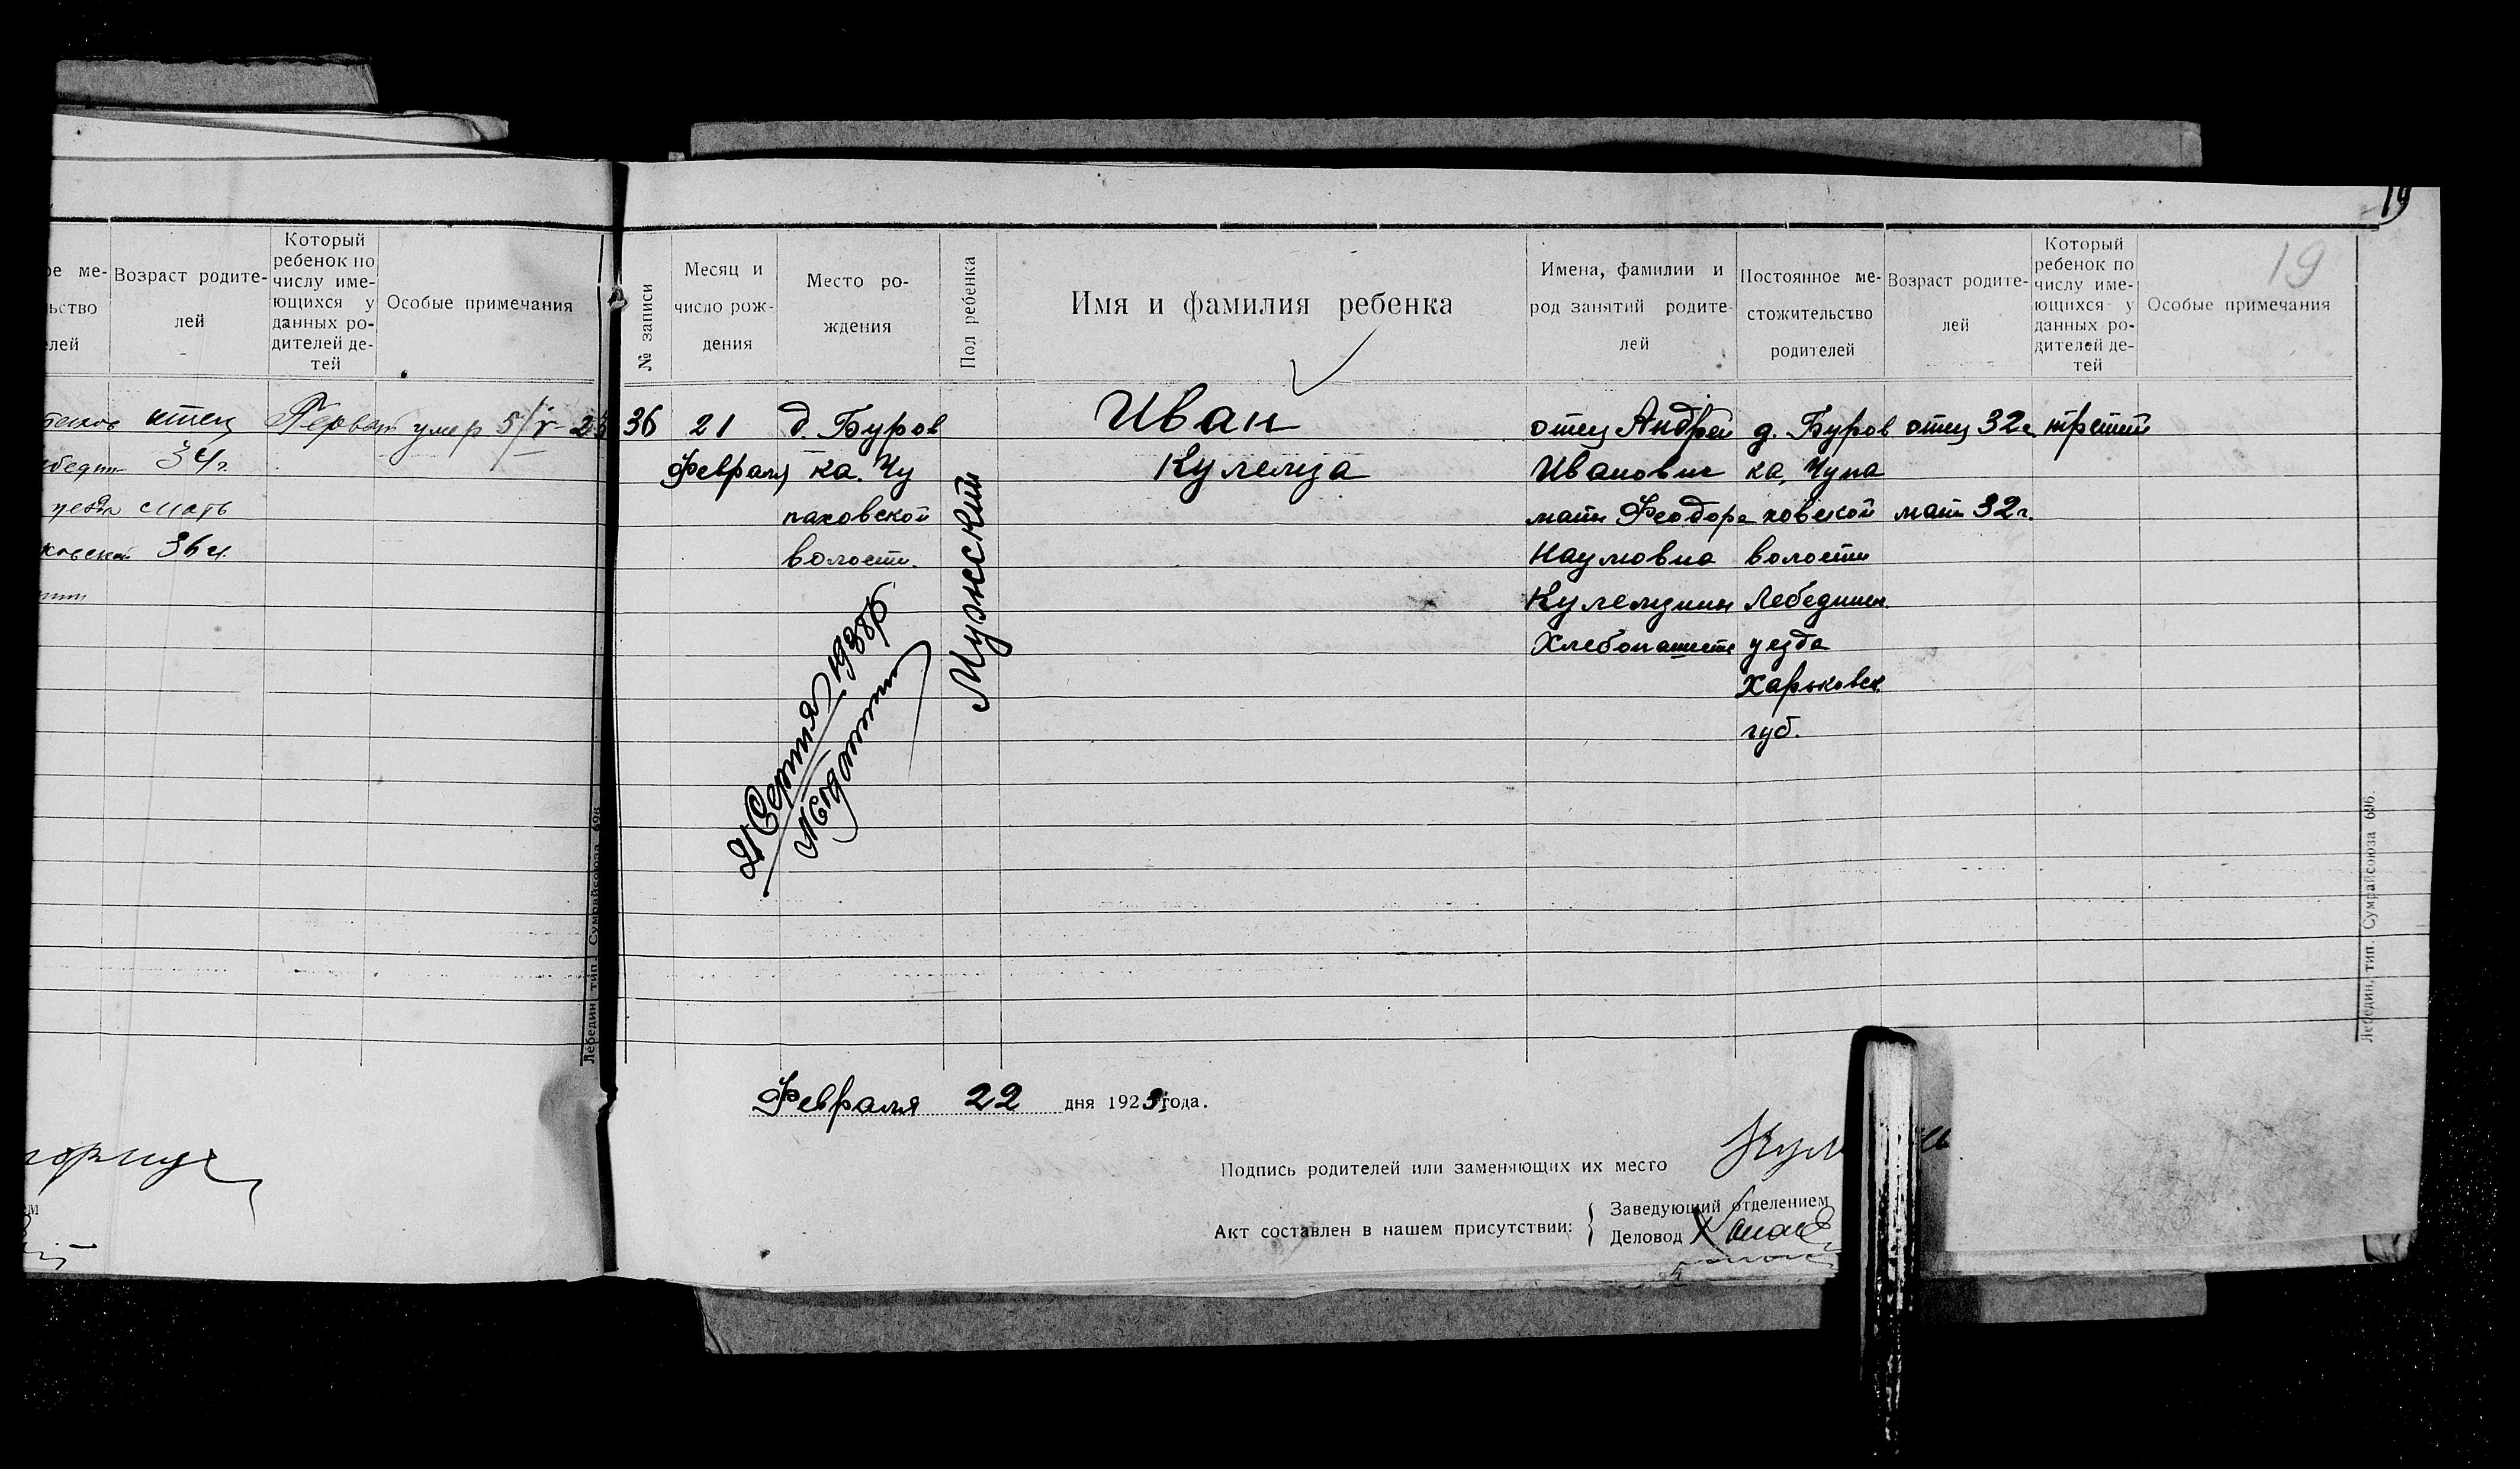 19
ое ме-
ьство
елей
Возраст родите-
лей
Который
ребенок по
числу име-
ющихся у
данных ро-
дителей де-
тей
Особые примечания
отец
Первый
умер 5/V 23
34 г.
уезда
мать
36 г.
Лебедин. тип. Сумрайсоюза 696
№ записи
Месяц и
число рож-
дения
Место ро-
ждения
Пол ребенка
Имя и фамилия ребенка
Имена, фамилии и
род занятий родите-
лей
Постоянное ме-
стожительство
родителей
Возраст родите-
лей
Который
ребенок по
числу име-
ющихся у
данных ро-
дителей де-
тей
Особые примечания
19
36
21
Февраля
д. Буров
ка. Чу
паховской
волости.
Мужской
Иван
Кулемза
отец Андрей
Иванович
мать Феодора
Наумовна
Кулемзины
Хлебопашест
д. Буров
ка, Чупа
ховской
волости
Лебединск.
уезда
Харьковск.
губ.
отец 32 г.
мать 32 г.
третий
Февраля 22 дня 1923 года.
Подпись родителей или заменяющих их место
Акт составлен в нашем присутствии:
Заведующий отделением
Деловод
Лебедин. тип. Сумрайсоюза 696.